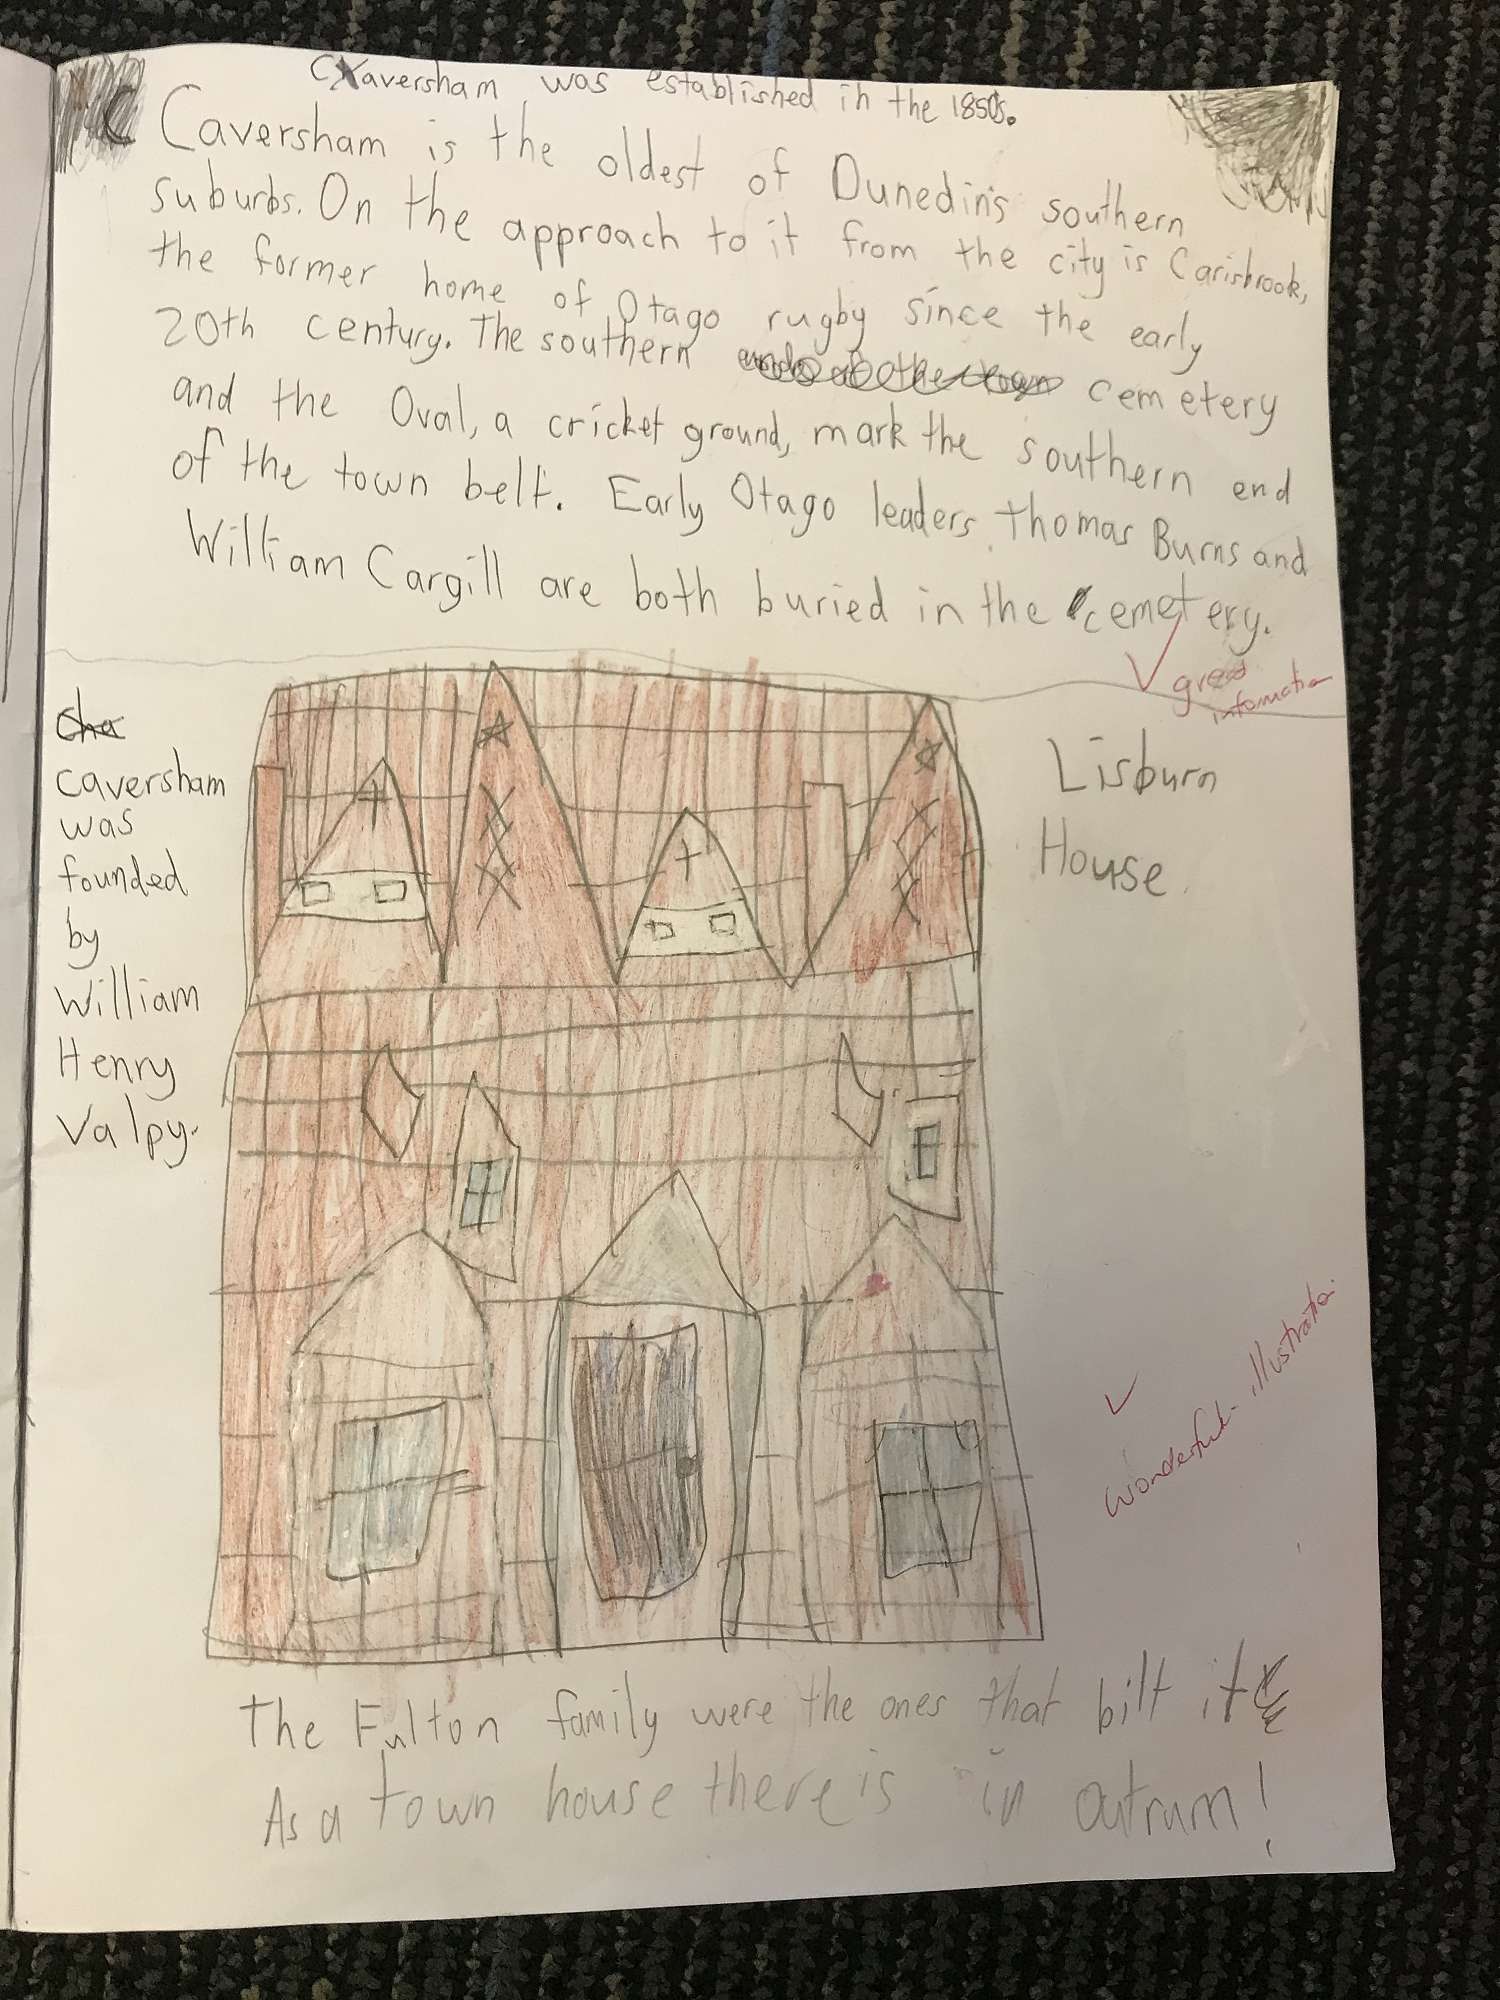 Caversham was established in the 1850s.
Caversham is the oldest of Dunedin's southern
suburbs. On the approach to it from the city is Carisbrook,
the former home of Otago rugby since the early
20th century. The southern cemetery
and the Oval, a cricket ground, mark the southern end
of the town belt. Early Otago leaders Thomas Burns and
William Cargill are both buried in the cemetery.
great
information
Cha
Caversham
was
founded
by
William
Henry
Valpy.
Lisburn
House
Wonderful illustration.
The Fulton family were the ones that bilt it
As a town house there is in outram!